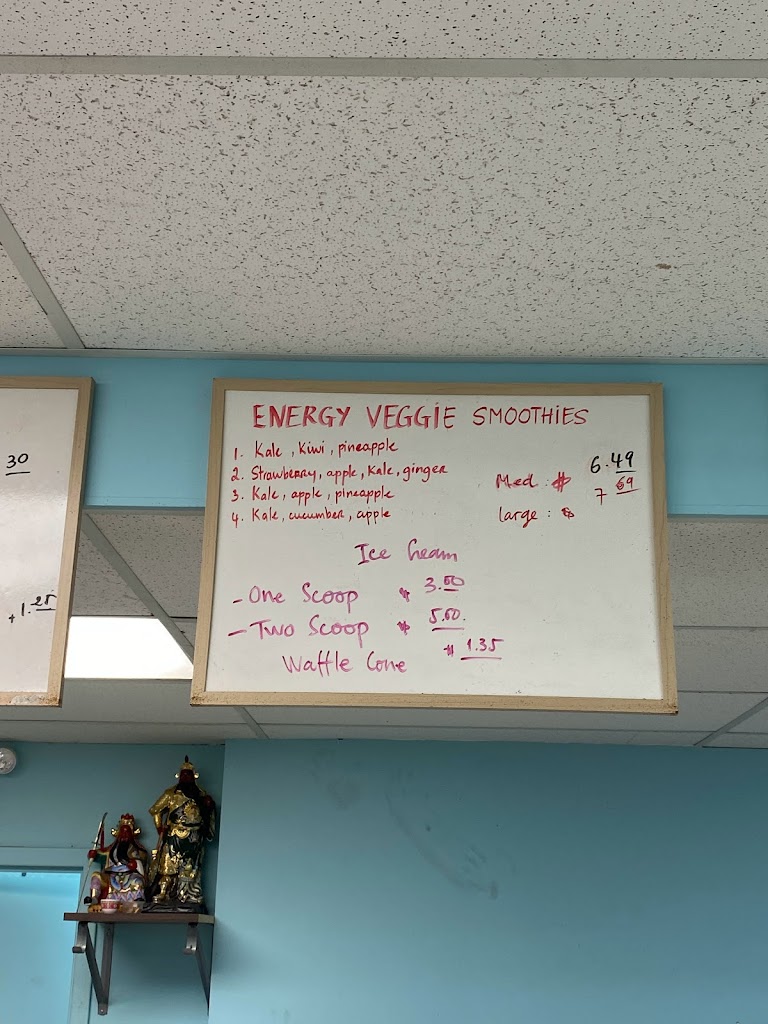 30
+1.25
ENERGY VEGGIE SMOOTHIES
1. Kale, Kiwi, pineapple
2. Strawberry, apple, Kale, ginger
3. Kale, apple, pineapple
4. Kale, cucumber, apple
Med : $ 6.49
large : $ 7 69
Ice Cream
- One Scoop $ 3.50
- Two Scoop $ 5.50.
Waffle Cone $ 1.35